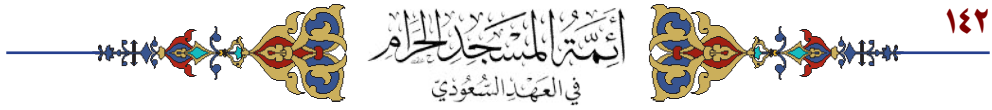 ١٤٢
أَئِمَّةُ المَسْجِدِ الحَرَامِ
في العَهْدِ السُّعُودِيّ